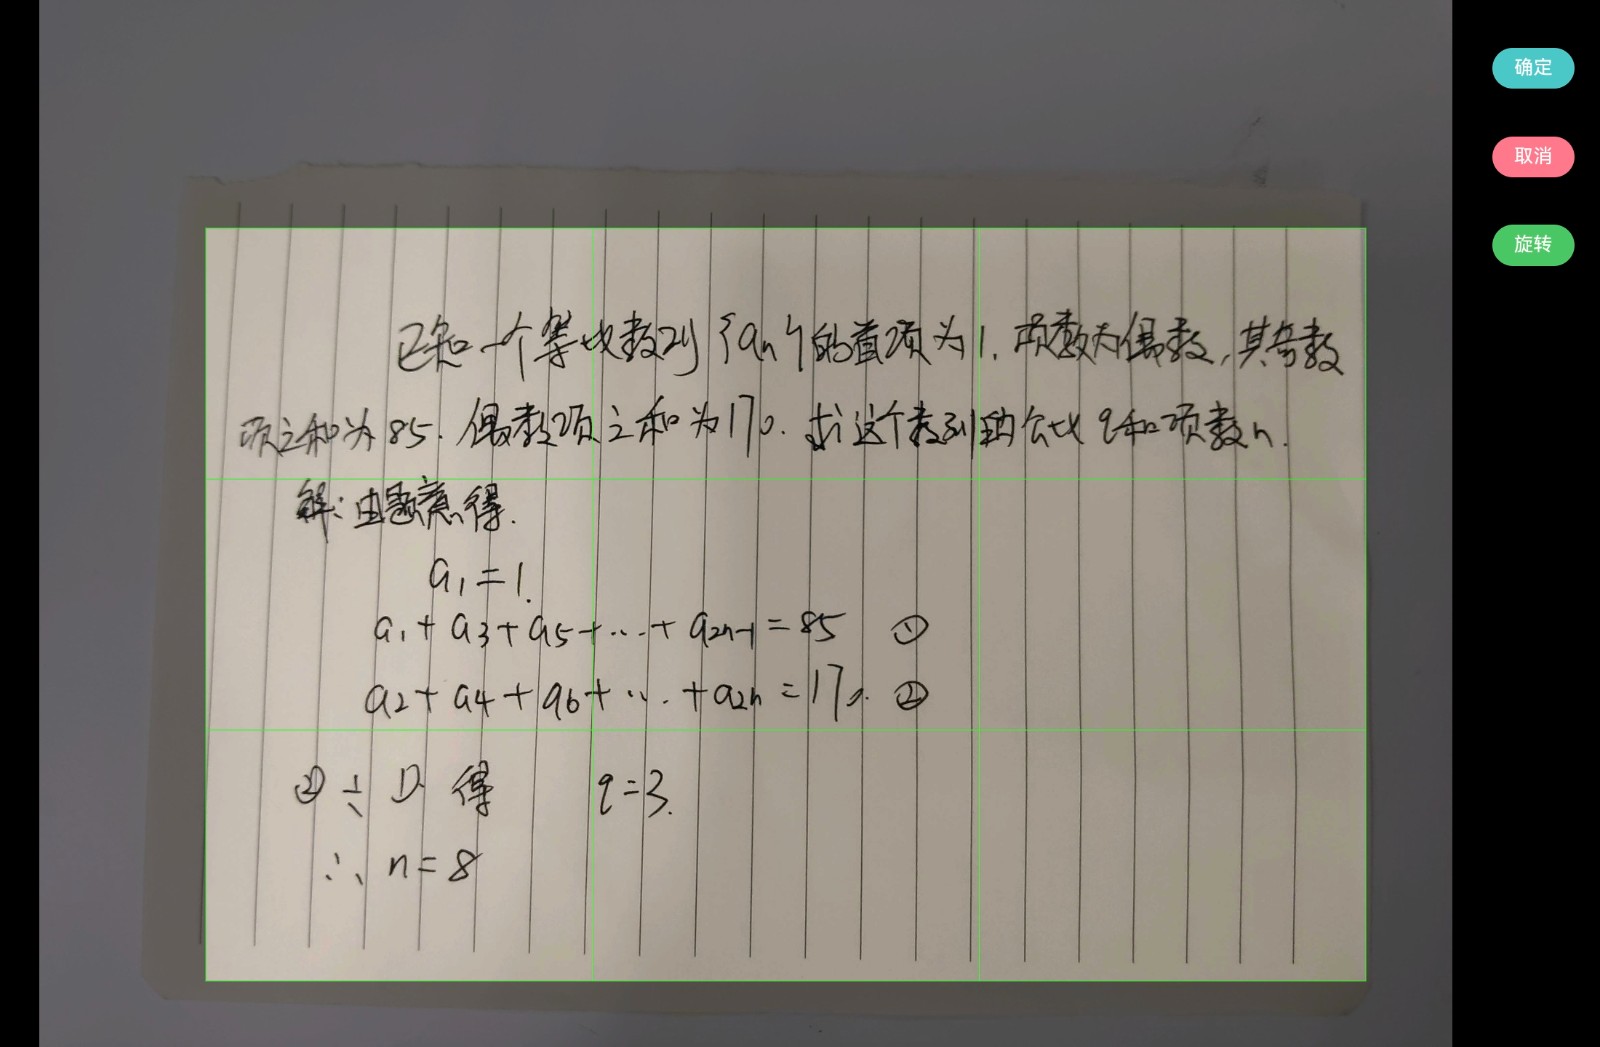 确定
取消
旋转
已知一个等比数列{an}的首项为1.项数为偶数,其奇数
项之和为85.偶数项之和为170.求这个数列的公比q和项数n.
解:由题意得.
a₁=1.
a₁+a₃+a₅+…+a₂ₙ₋₁=85 ①
a₂+a₄+a₆+…+a₂ₙ=170. ②
②÷① 得 q=3.
∴ n=8